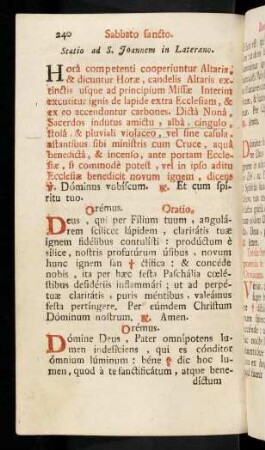 240 Sabbato sancto.
Statio ad S. Joannem in Laterano.
Horâ competenti cooperiuntur Altaria,
& dicuntur Horæ, candelis Altaris ex
tinctis usque ad principium Missæ Interim
excutitur ignis de lapide extra Ecclesiam, &
ex eo accenduntur carbones. Dictâ Nonâ,
Sacerdos indutus amictu, albâ, cingulo,
stolâ, & pluviali violaceo, vel sine casula,
astantibus sibi ministris cum Cruce, aquâ
benedictâ, & incenso, ante portam Eccle-
siæ, si commodè potest, vel in ipso aditu
Ecclesiæ benedicit novum ignem, dicens
℣. Dóminus vobíscum. ℟. Et cum spí-
ritu tuo.
Orémus. Oratio.
Deus, qui per Filium tuum, angulá-
rem scílicet lápidem, claritátis tuæ
ignem fidélibus contulísti: prodúctum è
sílice, nostris profutúrum úsibus, novum
hunc ignem san ✝ ctífica: & concéde
nobis, ita per hæc festa Paschália cœlé-
stibus desidériis inflammári; ut ad perpé-
tuæ claritátis, puris méntibus, valeámus
festa pertíngere. Per eúmdem Christum
Dóminum nostrum. ℟. Amen.
Orémus.
Dómine Deus, Pater omnípotens lu-
men indefíciens, qui es cónditor
ómnium lúminum: béne ✝ dic hoc lu-
men, quod à te sanctificátum, atque bene
dictum